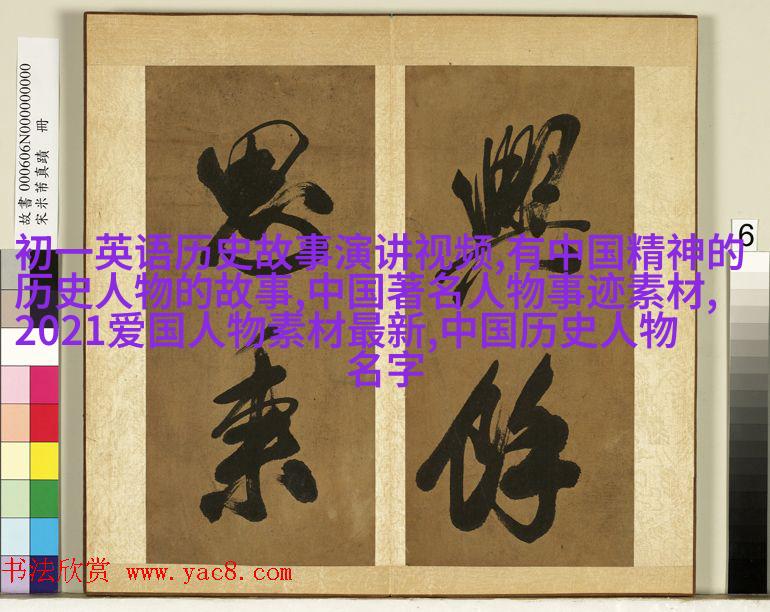 故書 000606N000000000
宋米芾真蹟 冊
6
興
餘
思
東
初一英语历史故事演讲视频,有中国精神的
历史人物的故事,中国著名人物事迹素材,
2021爱国人物素材最新,中国历史人物
名字
书法欣赏 www.yac8.com